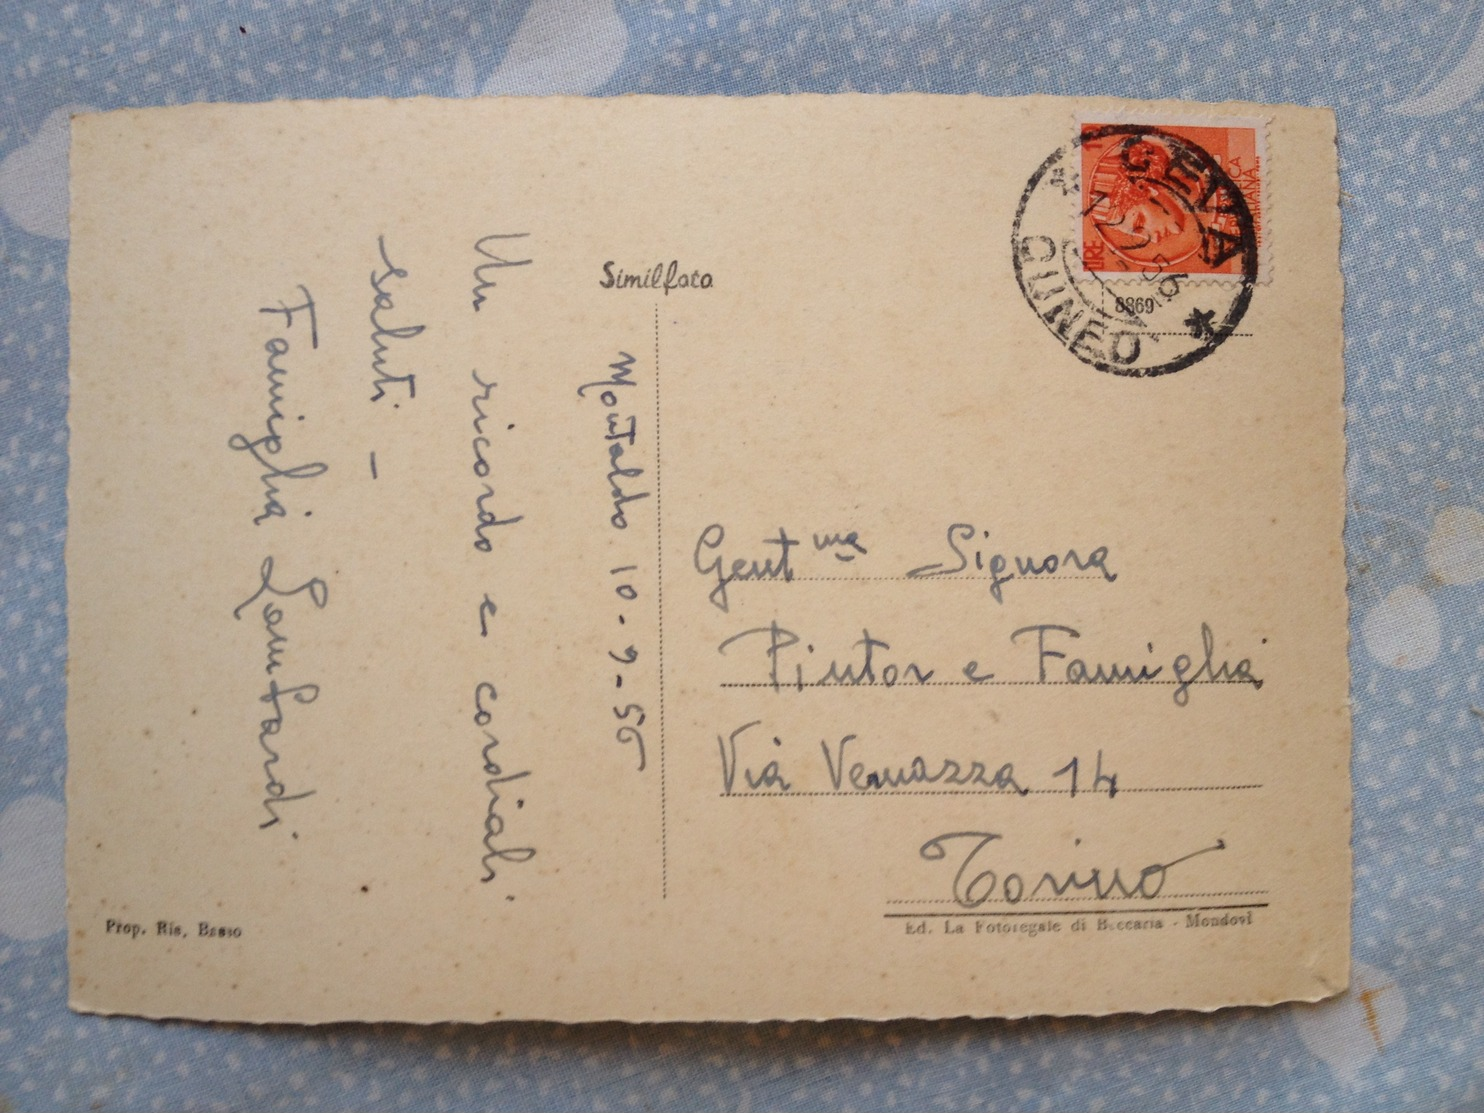 Similfoto
Montaldo 10-9-56
Un ricordo e cordiali
saluti -
Famiglia Lombardi
Prop. Ris. Basso
10
LIRE
CEVA
CUNEO
8869
Gent ma Signora
Pintor e Famiglia
Via Vernazza 14
Torino
Ed. La Fotoregale di Beccaria - Mondovì